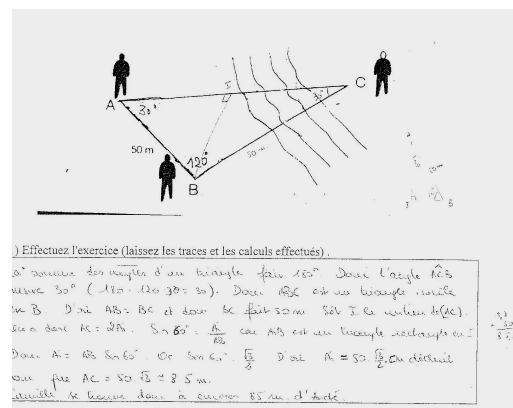 I
C
A
30°
30°
50 m
120°
50 m
B
) Effectuez l'exercice (laissez les traces et les calculs effectués) .
somme des angles d'un triangle fait 180°. Donc l'angle ACB
30° (180-120-30=30). Donc ABC est un triangle isocèle
B. D'où AB = BC et donc BC fait 50 m Soit I le milieu de [AC].
a donc AC = 2AI. Sin 60° = AI/AB car AIB est un triangle rectangle en I
Donc AI = AB Sin 60°. Or Sin 60° = √3/2 D'où AI = 50.√3/2. On déduit
que AC = 50 √3 ≈ 85 m.
se trouve donc à environ 85 m. d'